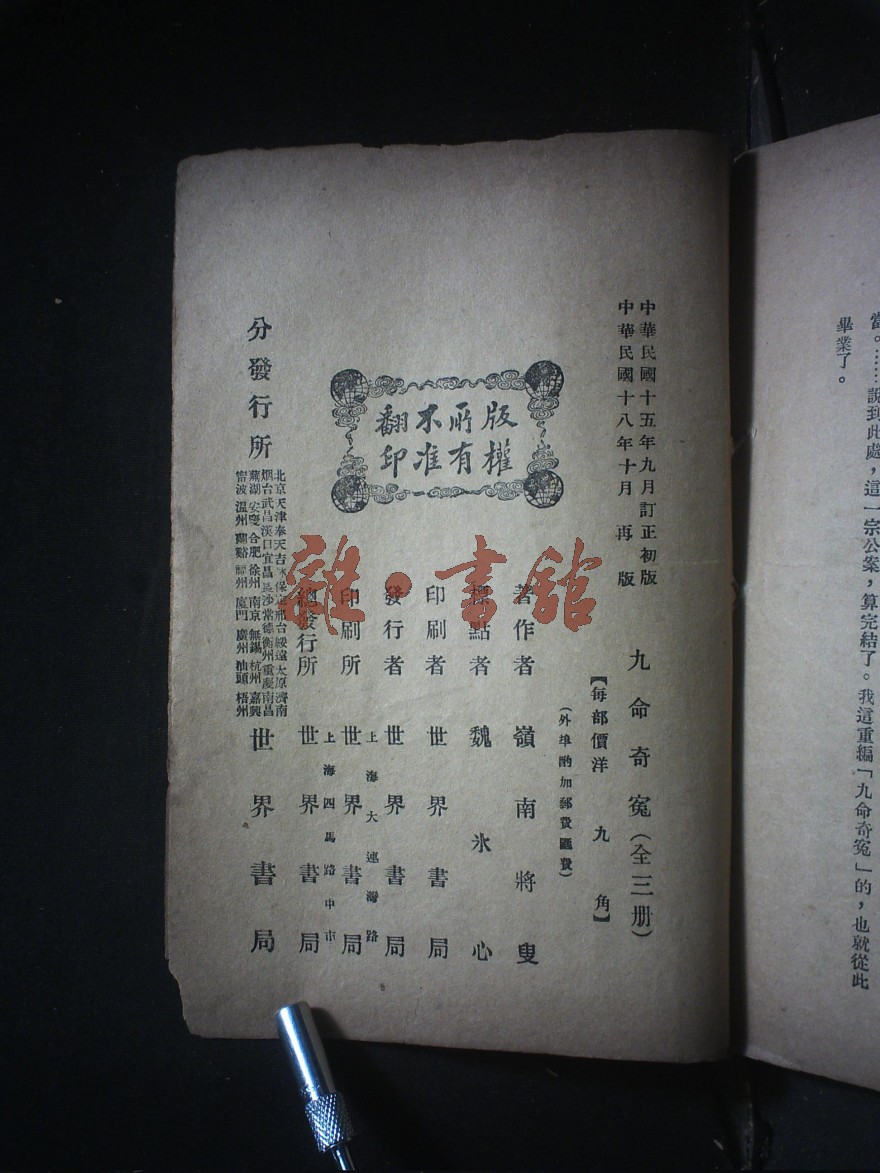 當。……說到此處，這一宗公案，算完結了。我這重編「九命奇冤」的，也就從此
畢業了。
中華民國十五年九月訂正初版
中華民國十八年十月再版
九命奇冤（全三册）
【每部價洋九角】
（外埠酌加郵費匯費）
版權所有
不准翻印
著作者 嶺南將叟
標點者 魏冰心
印刷者 世界書局
發行者 世界書局
上海大連灣路
印刷所 世界書局
上海四馬路中市
總發行所 世界書局
分發行所
北京天津奉天吉林保定邢台綏遠太原濟南
烟台武昌漢口宜昌長沙常德衡州重慶南昌
蕪湖安慶合肥徐州南京無錫杭州嘉興
甯波溫州蘭谿 州廈門廣州汕頭梧州
世界書局
雜·書館